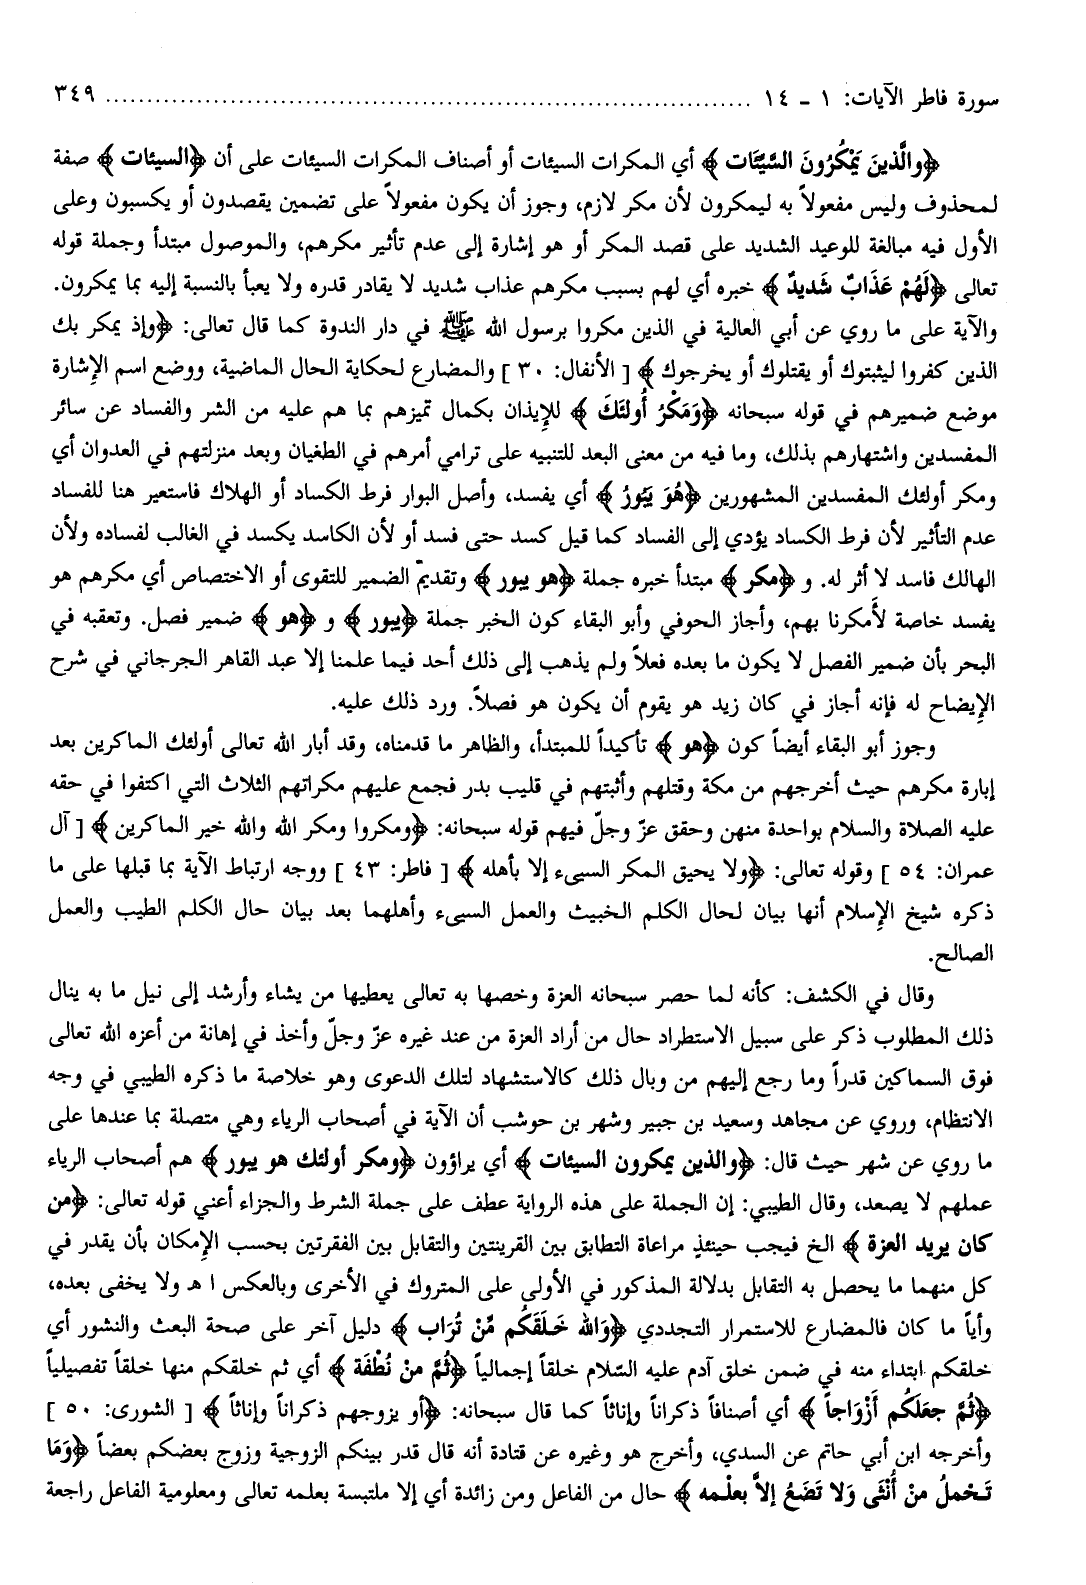 سورة فاطر الآيات: ١ ـ ١٤ ................................................................................ ٣٤٩
﴿والَّذينَ يَمْكُرُونَ السَّيِّئات﴾ أي المكرات السيئات أو أصناف المكرات السيئات على أن ﴿السيئات﴾ صفة
لمحذوف وليس مفعولاً به ليمكرون لأن مكر لازم، وجوز أن يكون مفعولاً على تضمين يقصدون أو يكسبون وعلى
الأول فيه مبالغة للوعيد الشديد على قصد المكر أو هو إشارة إلى عدم تأثير مكرهم، والموصول مبتدأ وجملة قوله
تعالى ﴿لَهُمْ عَذَابٌ شَديدٌ﴾ خبره أي لهم بسبب مكرهم عذاب شديد لا يقادر قدره ولا يعبأ بالنسبة إليه بما يمكرون.
والآية على ما روي عن أبي العالية في الذين مكروا برسول الله ﷺ في دار الندوة كما قال تعالى: ﴿وإذ يمكر بك
الذين كفروا ليثبتوك أو يقتلوك أو يخرجوك﴾ [ الأنفال: ٣٠ ] والمضارع لحكاية الحال الماضية، ووضع اسم الإِشارة
موضع ضميرهم في قوله سبحانه ﴿وَمَكْرُ أُولئَكَ﴾ للإِيذان بكمال تميزهم بما هم عليه من الشر والفساد عن سائر
المفسدين واشتهارهم بذلك، وما فيه من معنى البعد للتنبيه على ترامي أمرهم في الطغيان وبعد منزلتهم في العدوان أي
ومكر أولئك المفسدين المشهورين ﴿هُوَ يَبُورُ﴾ أي يفسد، وأصل البوار فرط الكساد أو الهلاك فاستعير هنا للفساد
عدم التأثير لأن فرط الكساد يؤدي إلى الفساد كما قيل كسد حتى فسد أو لأن الكاسد يكسد في الغالب لفساده ولأن
الهالك فاسد لا أثر له. و ﴿مكر﴾ مبتدأ خبره جملة ﴿هو يبور﴾ وتقديم الضمير للتقوى أو الاختصاص أي مكرهم هو
يفسد خاصة لأَمكرنا بهم، وأجاز الحوفي وأبو البقاء كون الخبر جملة ﴿يبور﴾ و ﴿هو﴾ ضمير فصل. وتعقبه في
البحر بأن ضمير الفصل لا يكون ما بعده فعلاً ولم يذهب إلى ذلك أحد فيما علمنا إلا عبد القاهر الجرجاني في شرح
الإِيضاح له فإنه أجاز في كان زيد هو يقوم أن يكون هو فصلاً. ورد ذلك عليه.
وجوز أبو البقاء أيضاً كون ﴿هو﴾ تأكيداً للمبتدأ، والظاهر ما قدمناه، وقد أبار الله تعالى أولئك الماكرين بعد
إبارة مكرهم حيث أخرجهم من مكة وقتلهم وأثبتهم في قليب بدر فجمع عليهم مكراتهم الثلاث التي اكتفوا في حقه
عليه الصلاة والسلام بواحدة منهن وحقق عزّ وجلّ فيهم قوله سبحانه: ﴿ومكروا ومكر الله والله خير الماكرين﴾ [ آل
عمران: ٥٤ ] وقوله تعالى: ﴿ولا يحيق المكر السيىء إلا بأهله﴾ [ فاطر: ٤٣ ] ووجه ارتباط الآية بما قبلها على ما
ذكره شيخ الإِسلام أنها بيان لحال الكلم الخبيث والعمل السيىء وأهلهما بعد بيان حال الكلم الطيب والعمل
الصالح.
وقال في الكشف: كأنه لما حصر سبحانه العزة وخصها به تعالى يعطيها من يشاء وأرشد إلى نيل ما به ينال
ذلك المطلوب ذكر على سبيل الاستطراد حال من أراد العزة من عند غيره عزّ وجلّ وأخذ في إهانة من أعزه الله تعالى
فوق السماكين قدراً وما رجع إليهم من وبال ذلك كالاستشهاد لتلك الدعوى وهو خلاصة ما ذكره الطيبي في وجه
الانتظام، وروي عن مجاهد وسعيد بن جبير وشهر بن حوشب أن الآية في أصحاب الرياء وهي متصلة بما عندها على
ما روي عن شهر حيث قال: ﴿والذين يمكرون السيئات﴾ أي يراؤون ﴿ومكر أولئك هو يبور﴾ هم أصحاب الرياء
عملهم لا يصعد، وقال الطيبي: إن الجملة على هذه الرواية عطف على جملة الشرط والجزاء أعني قوله تعالى: ﴿من
كان يريد العزة﴾ الخ فيجب حينئذٍ مراعاة التطابق بين القرينتين والتقابل بين الفقرتين بحسب الإِمكان بأن يقدر في
كل منهما ما يحصل به التقابل بدلالة المذكور في الأولى على المتروك في الأخرى وبالعكس ا هـ ولا يخفى بعده،
وأياً ما كان فالمضارع للاستمرار التجددي ﴿وَالله خَلَقَكُم مِّنْ تُرَاب﴾ دليل آخر على صحة البعث والنشور أي
خلقكم ابتداء منه في ضمن خلق آدم عليه السّلام خلقاً إجمالياً ﴿ثُمَّ منْ نُطْفَة﴾ أي ثم خلقكم منها خلقاً تفصيلياً
﴿ثُمَّ جعَلَكُم أَزْوَاجاً﴾ أي أصنافاً ذكراناً وإناثاً كما قال سبحانه: ﴿أو يزوجهم ذكراناً وإناثاً﴾ [ الشورى: ٥٠ ]
وأخرجه ابن أبي حاتم عن السدي، وأخرج هو وغيره عن قتادة أنه قال قدر بينكم الزوجية وزوج بعضكم بعضاً ﴿وَمَا
تَحْملُ منْ أُنْثَى وَلا تَضَعُ إلاَّ بعلْمه﴾ حال من الفاعل ومن زائدة أي إلا ملتبسة بعلمه تعالى ومعلومية الفاعل راجعة